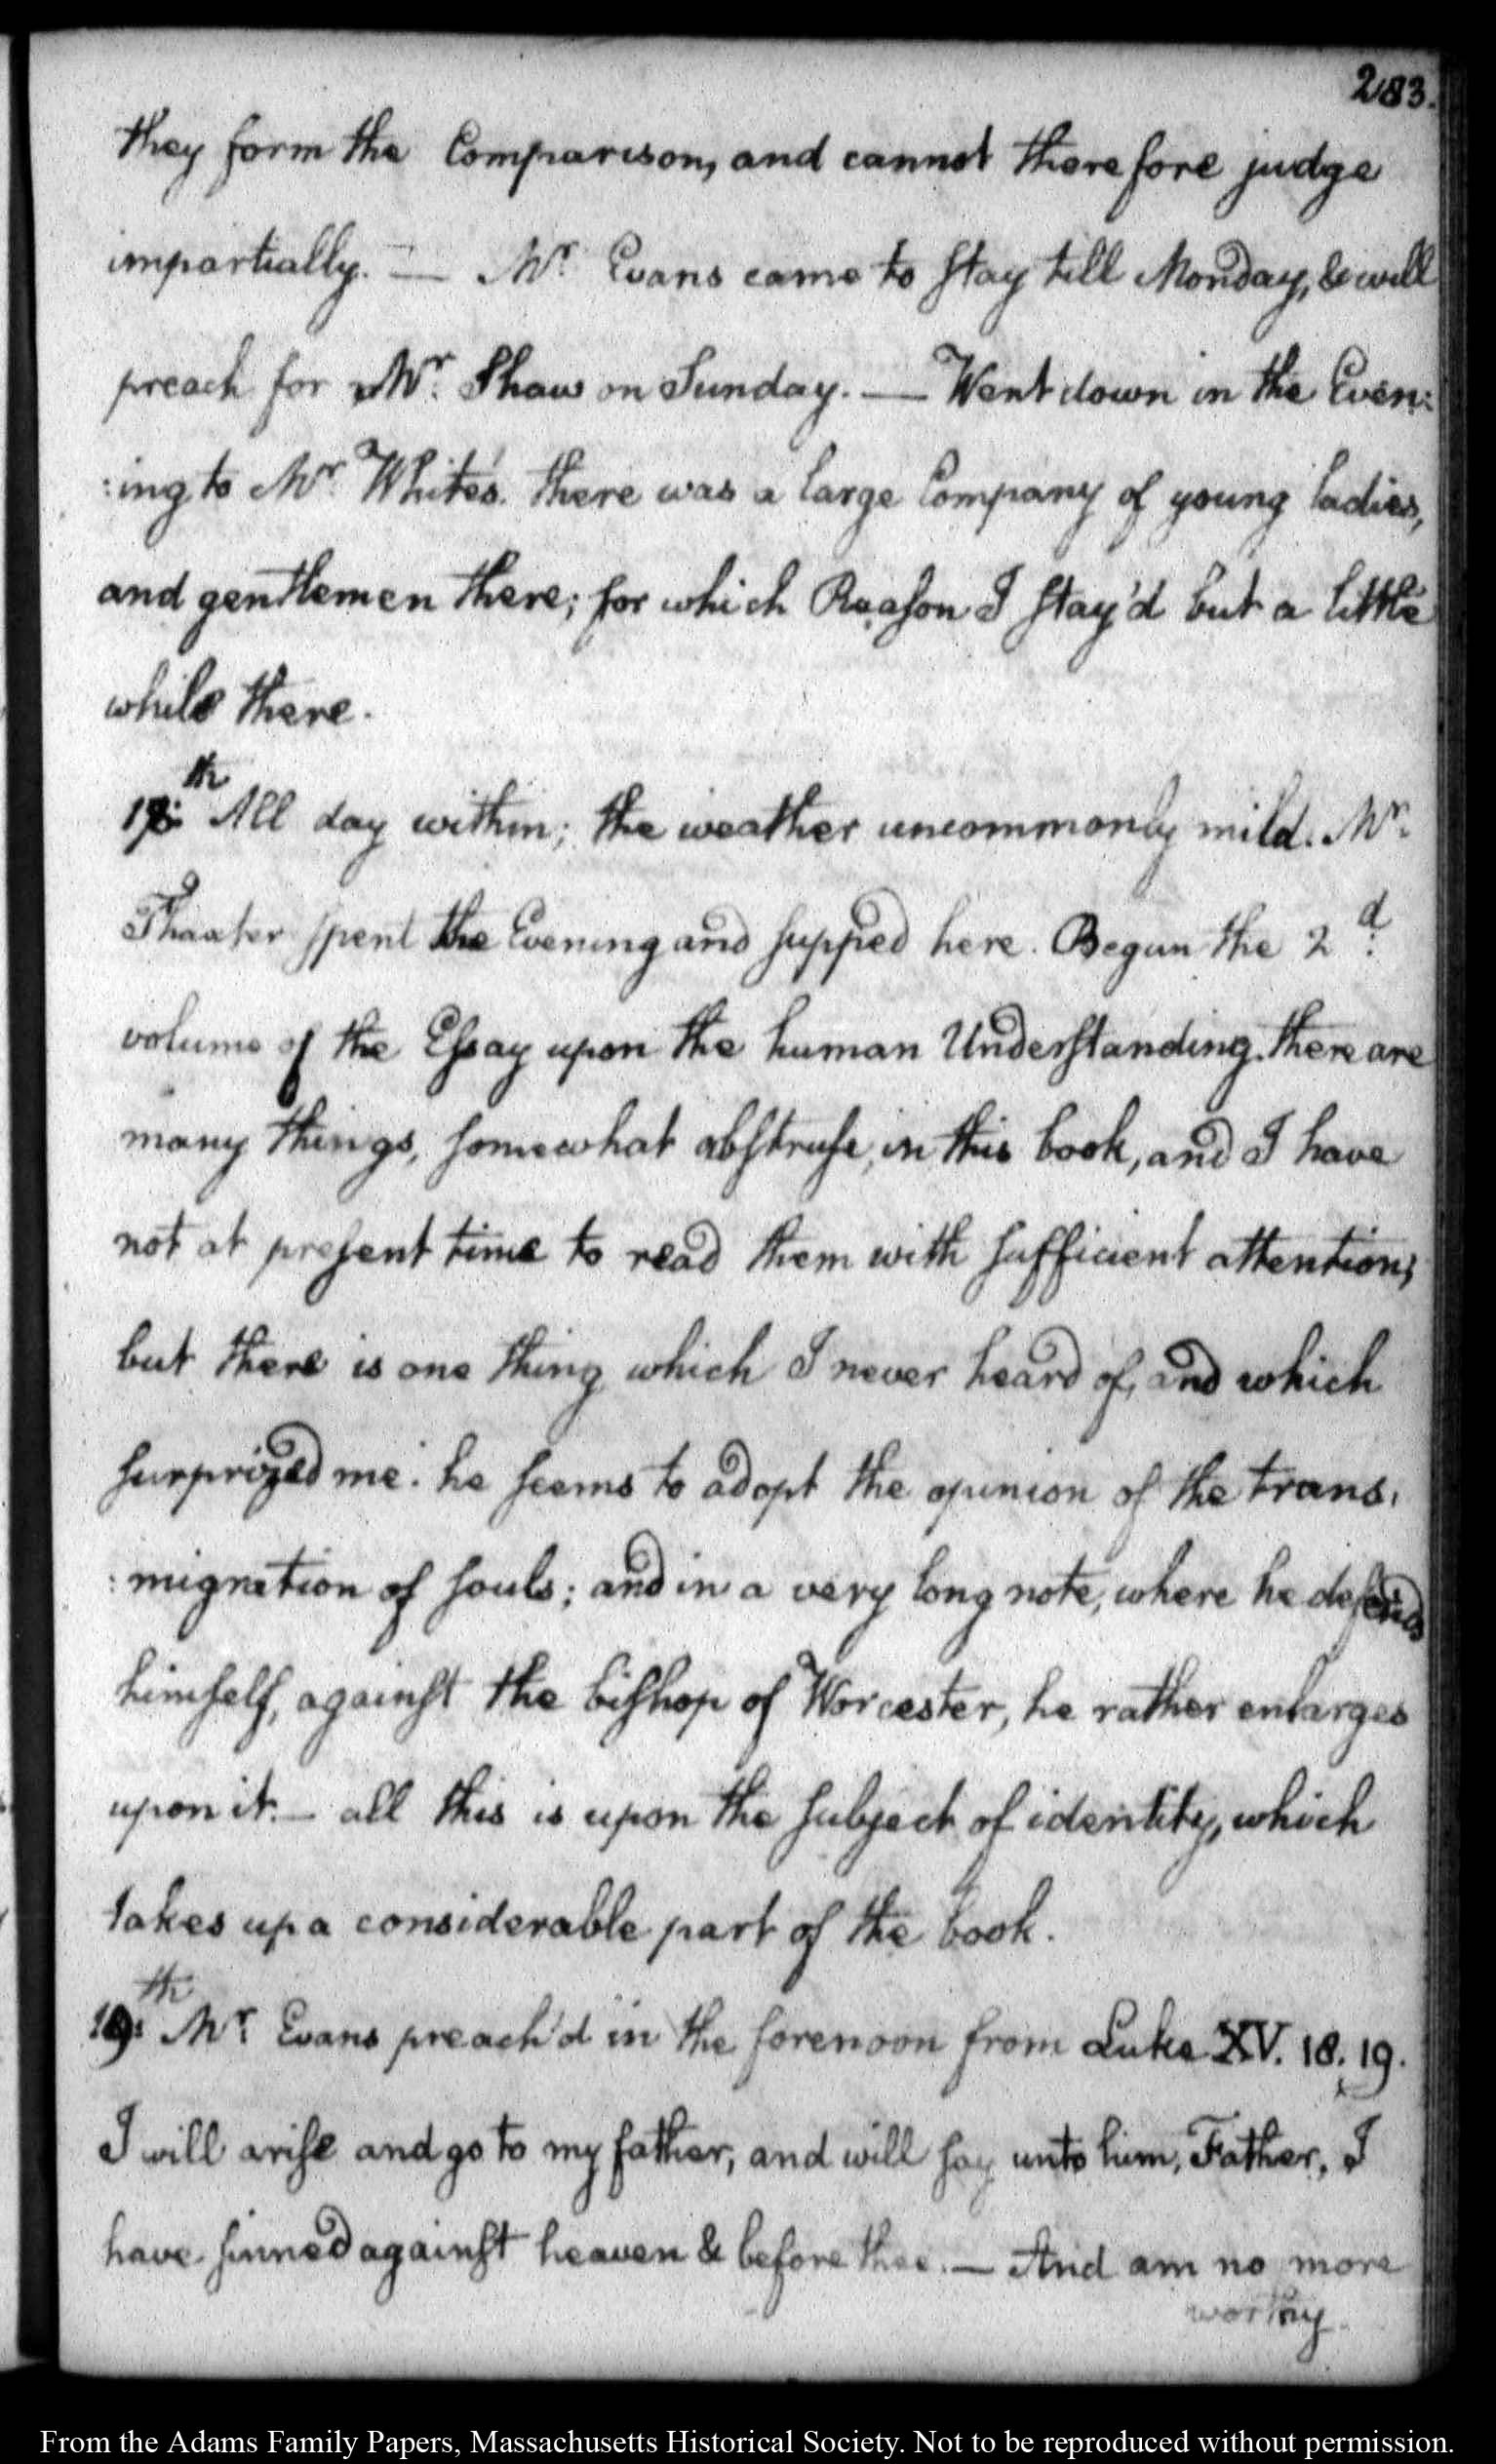 283.
they form the Comparison, and cannot therefore judge
impartially. — Mr. Evans came to stay till Monday, & will
preach for Mr. Shaw on Sunday. — Went down in the Even:
:ing to Mr. White's. there was a large Company of young ladies,
and gentlemen there; for which Reason I stay'd but a little
while there.
18th. All day within; the weather uncommonly mild. Mr.
Thaxter spent the Evening and supped here. Begun the 2d.
volume of the Essay upon the human Understanding. there are
many things, somewhat abstruse, in this book, and I have
not at present time to read them with sufficient attention;
but there is one thing which I never heard of, and which
surprized me. he seems to adopt the opinion of the trans:
:migration of souls; and in a very long note, where he defends
himself, against the bishop of Worcester, he rather enlarges
upon it. — all this is upon the subject of identity, which
takes up a considerable part of the book.
19th. Mr. Evans preach'd in the forenoon from Luke XV. 18. 19.
I will arise and go to my father, and will say unto him, Father, I
have sinned against heaven & before thee. — And am no more
worthy.
From the Adams Family Papers, Massachusetts Historical Society. Not to be reproduced without permission.